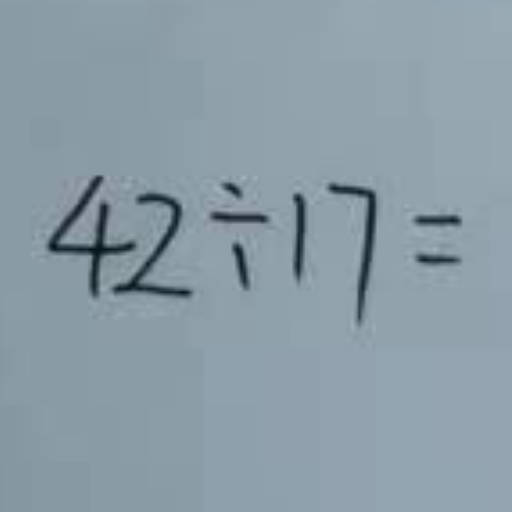 42÷17=